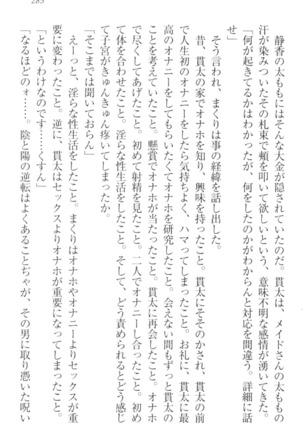 静香の太ももにはそんな大金が隠されていたのだ。貫太は、メイドさんの太ももの
汗が染みついたその札束で頬を叩いて欲しいという、意味不明な感情が湧いてきた。
「何が起きてるかはわかったが、何をしたのかがわからんと対応を間違う。詳細に話
せ」
そう言われ、まくりは事の経緯を話し出した。
昔、貫太の家でオナホを知り、興味を持ったこと。貫太にそそのかされ、貫太の前
で人生初のオナニーをしたら気持ちよく、ハマってしまったこと。お礼に、貫太に最
高のオナニーをしてもらいたくてオナホを研究したこと。会えない間もずっと貫太の
ことを考えていたこと。懸賞でオナホが当たったこと。貫太に再会したこと。オナホ
で尽くしてあげたこと。初めて射精を見たこと。二人でオナニーし合ったこと。初め
て体を合わせたこと。淫らな性生活をしたこと。そして、どう責められるとどう感じ
て子宮がきゅんきゅん疼いてしまったか。
「そこまでは聞いておらん」
えーっと、淫らな性生活をしたこと。まくりはオナホやオナニーよりセックスが重
要に変わったこと。逆に、貫太はセックスよりオナホが重要になってしまったこと。
「というわけなのです……ぐすん」
「なるほどのォ……。陰と陽の逆転はよくあることぢゃが、その男に取り憑いた呪い
285